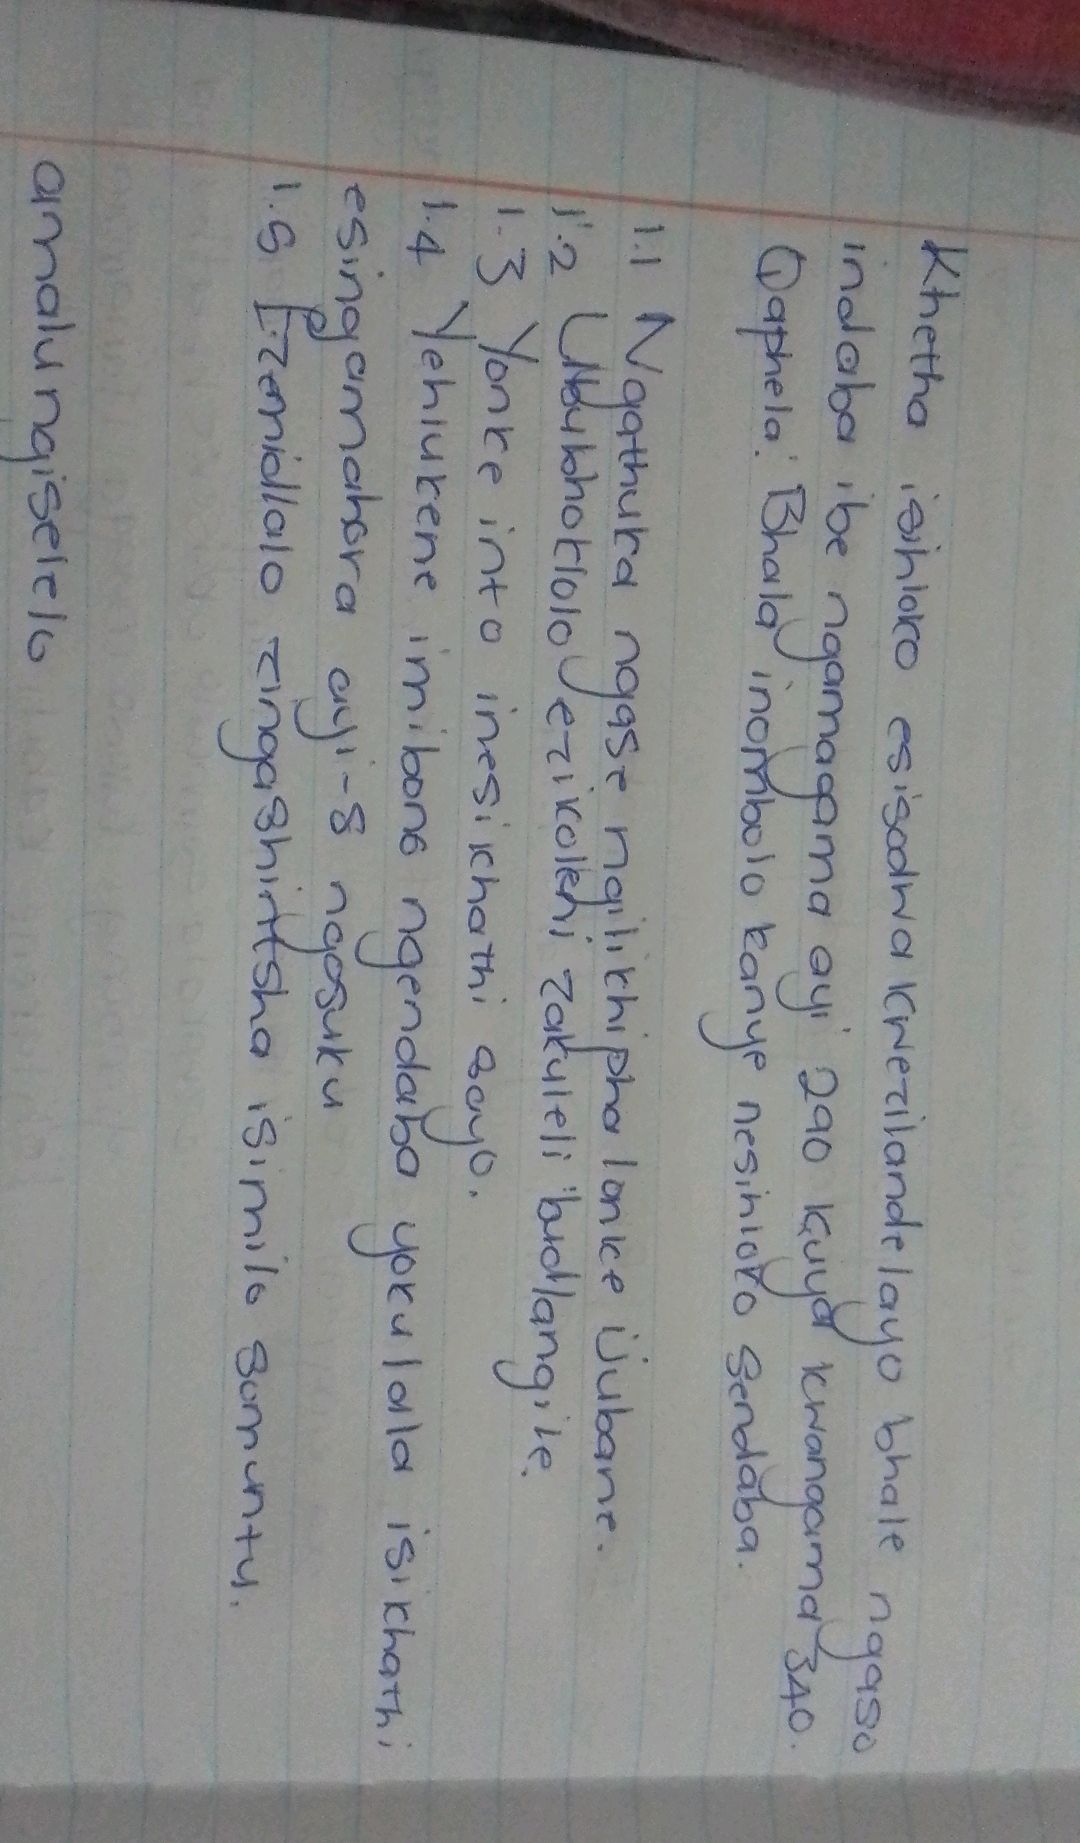 Khetha isihloko esisodwa kwezilandelayo bhale ngaso
indaba ibe ngamagama ayi 290 kuya kwangama 340.
Qaphela: Bhala inombolo kanye nesihloko sendaba.
1.1 Ngathuka ngase ngilikhipha lonke ijubane.
1.2 Ububhoklolo ezikoleni zakuleli budlangile.
1.3 Yonke into inesikhathi sayo.
1.4 Yehlukene imibono ngendaba yokulala isikhathi
esingamahora ayi-8 ngosuku
1.5 Ezemidlalo zingashintsha isimilo somuntu.
amalungiselelo